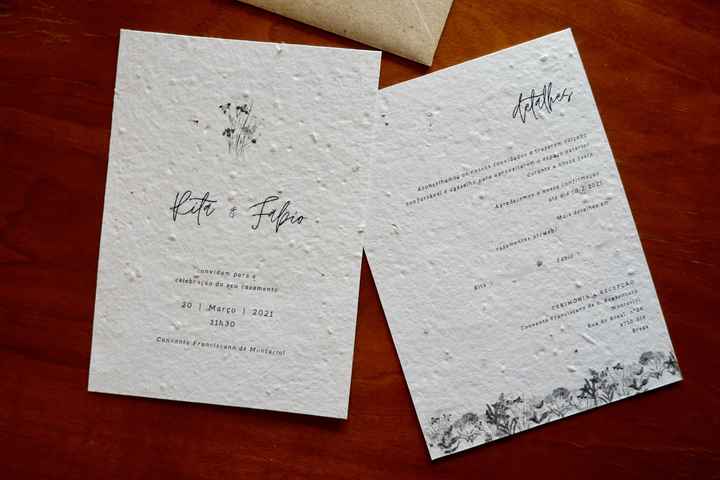 Rita & Fabio
convidam para a
celebração do seu casamento
20 | Março | 2021
11h30
Convento Franciscano de Montariol
detalhes
Aconselhamos os nossos convidados a trazerem calçado
confortável e agasalho para aproveitarem o espaço exterior
durante a nossa festa.
Agradecemos a vossa confirmação
até dia
Mais detalhes em
Rita
Fabio
CERIMÓNIA & RECEPÇÃO
Convento Franciscano de S. Boaventura
Montariol
Rua do
4710
Braga